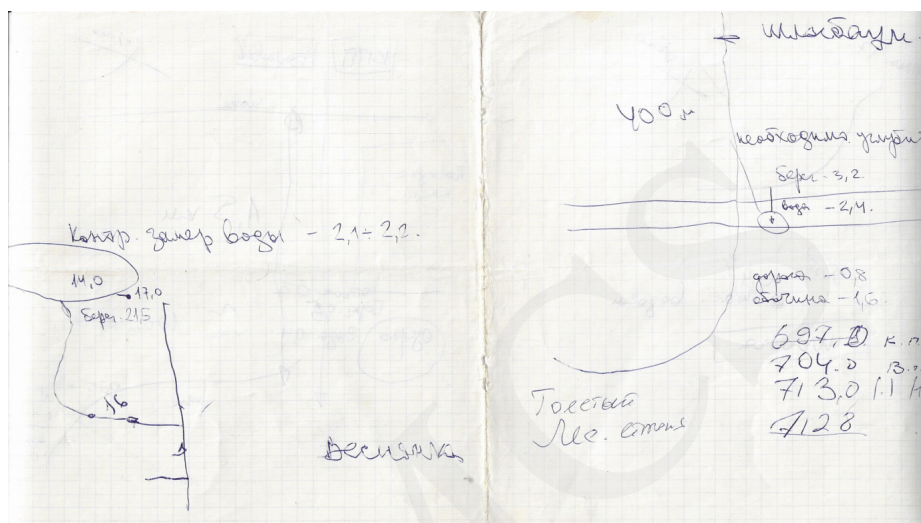 Контр. замер воды - 2,1÷2,2.
14,0
17,0
берег 21,5
1,6
Веснянка
шлагбаум.
400 м
необходимо
берег - 3,2
вода - 2,4.
дорога - 0,8
обочина - 1,6
697,0 к.п
704.0 В.
713,0
7128
Толстый
Лес.